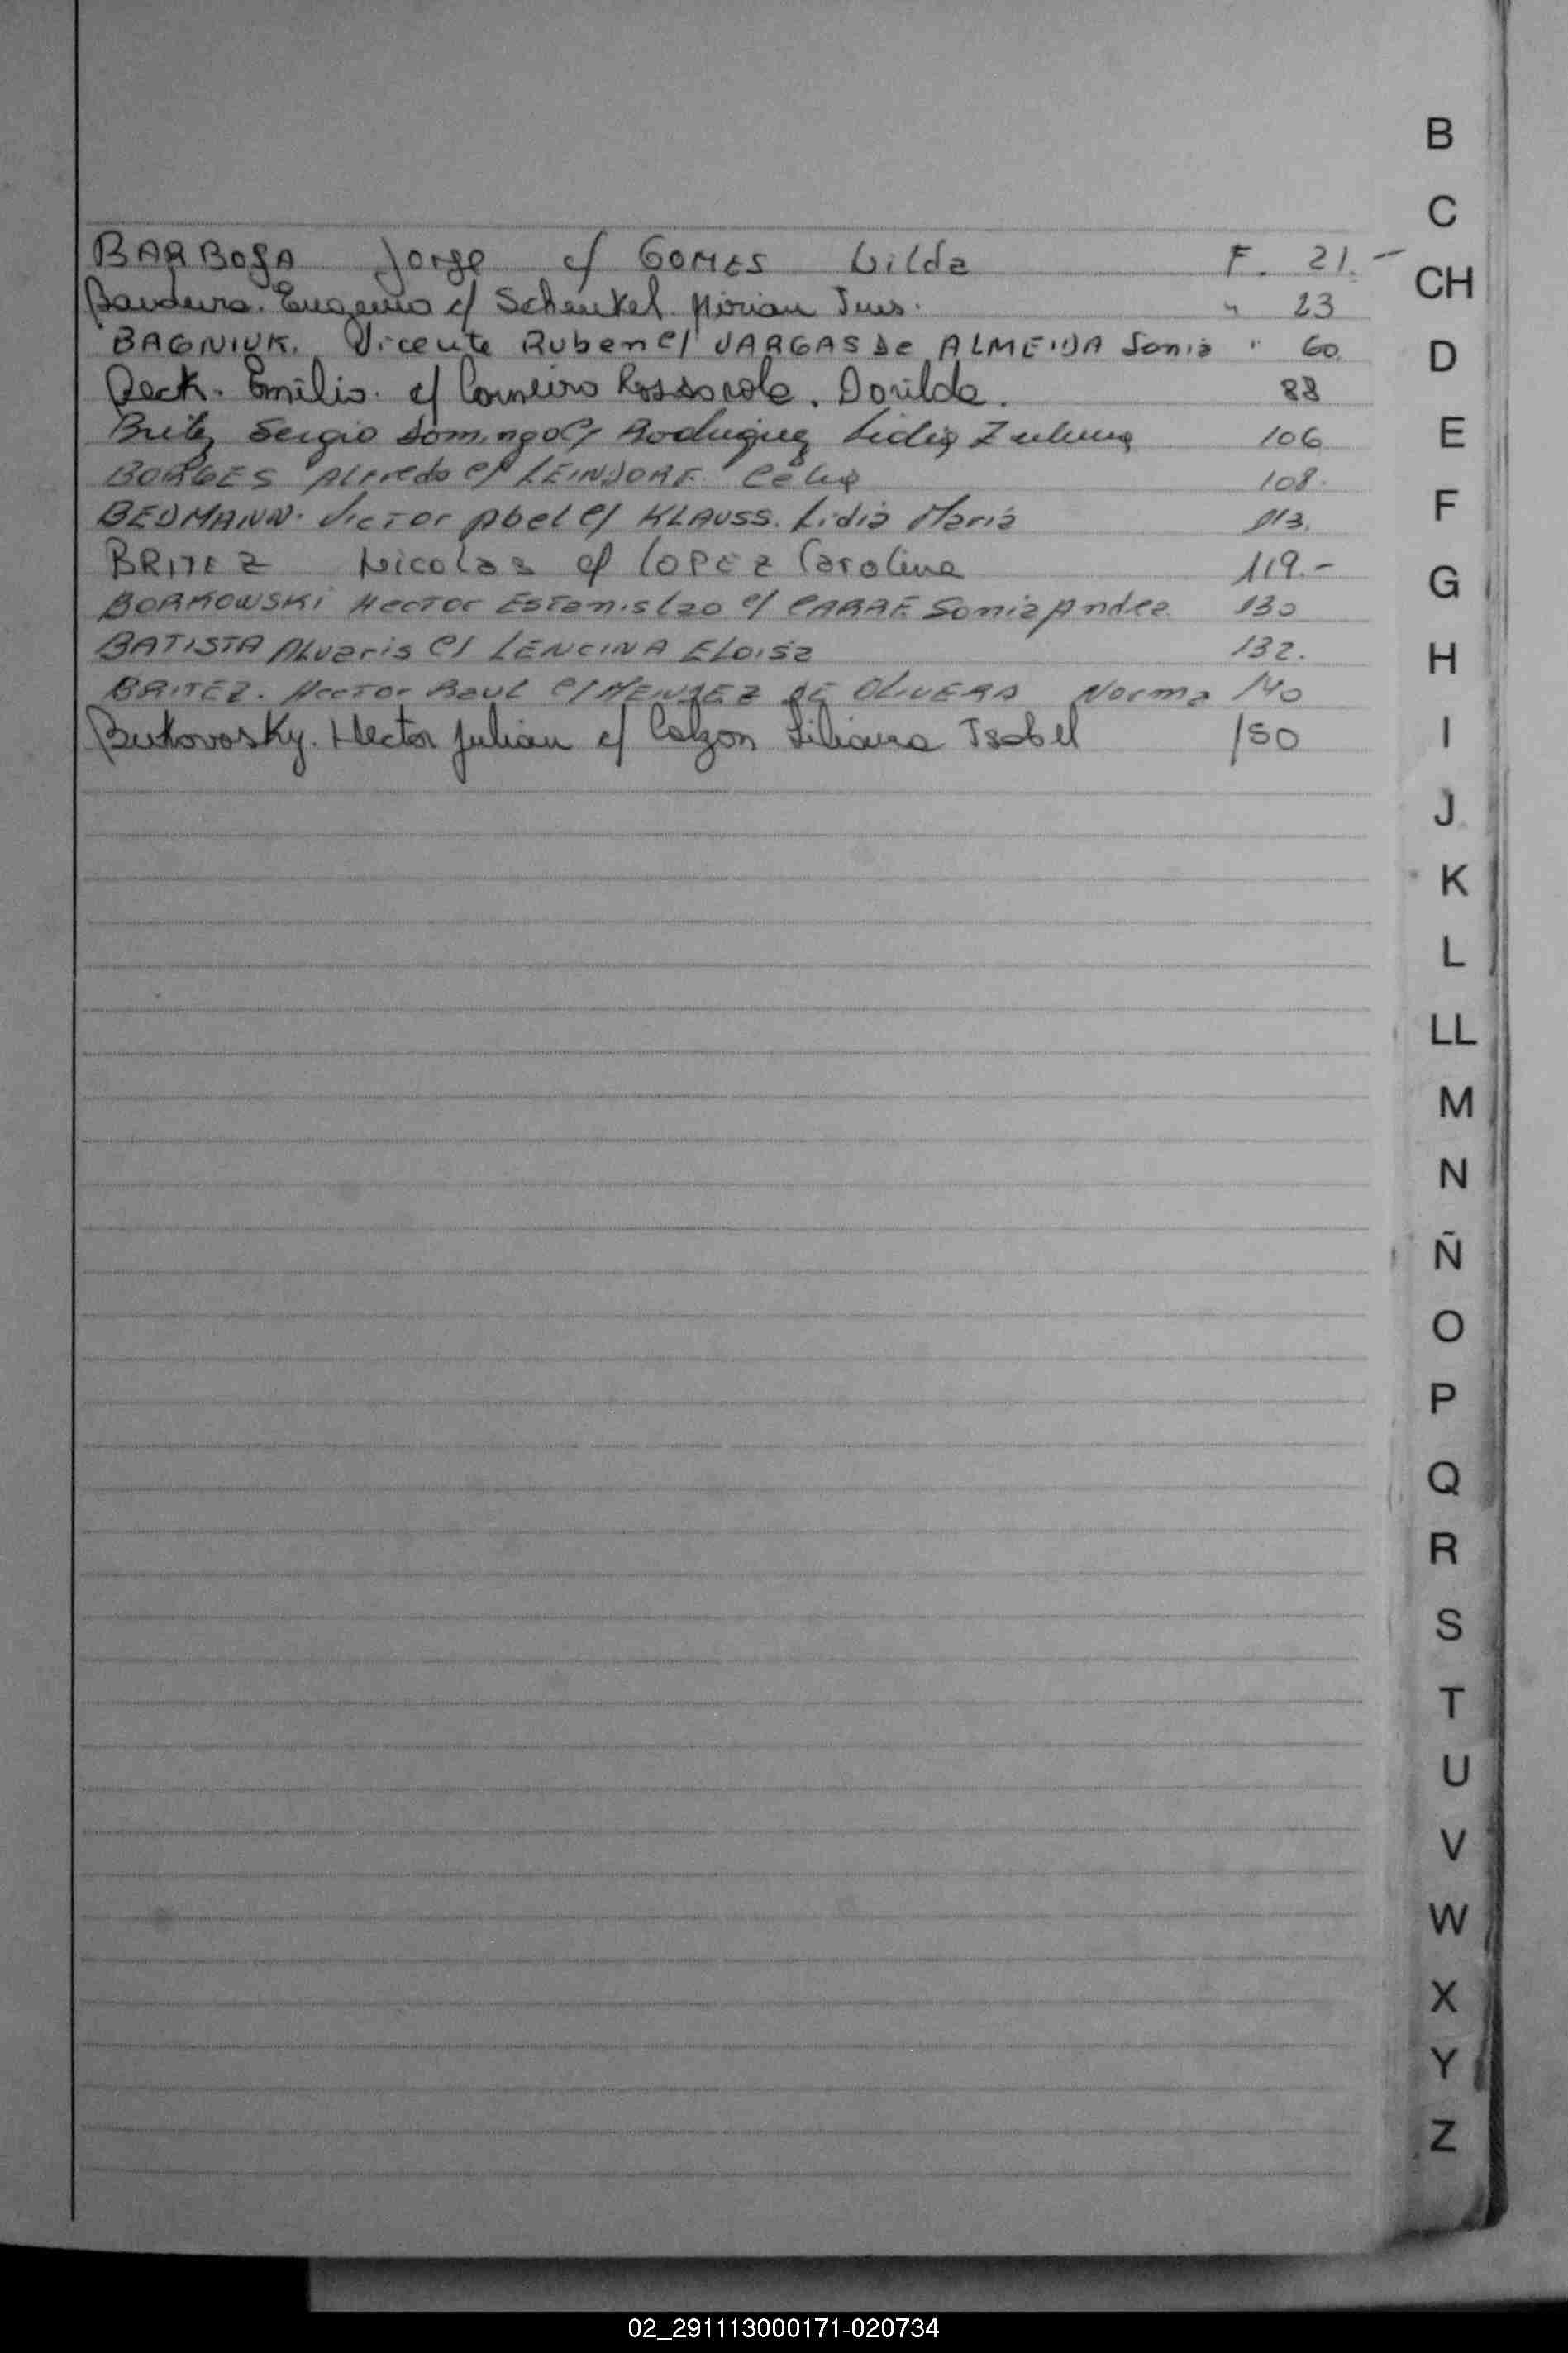 BARBOSA Jorge c/ GOMES Gilda F. 21.-
Bandeira. Eugenio c/ Schenkel. Mirian Ines. " 23
BAGNIUK. Vicente Ruben c/ VARGAS De ALMEIDA Sonia " 60
Beck. Emilio. c/ Carneiro Dorilda. 83
Britez Sergio Domingo c/ Rodriguez Lidia Zulema 106
BORGES Alfredo c/ LEINDORF. Celia 108.
BEDMANN. Victor Abel c/ KLAUSS. Lidia Maria 113.
BRITEZ Nicolas c/ LOPEZ Carolina 119.-
BORKOWSKI Hector Estanislao c/ CARRE Sonia Andrea 130
BATISTA Alvaris c/ LENCINA ELoisa 132.
BRITEZ. Hector Raul c/ MENDEZ DE OLIVERA Norma 140
Bukovosky. Hector Julian c/ Calzon Liliana Isabel 150
B
C
CH
D
E
F
G
H
I
J
K
L
LL
M
N
Ñ
O
P
Q
R
S
T
U
V
W
X
Y
Z
02_291113000171-020734